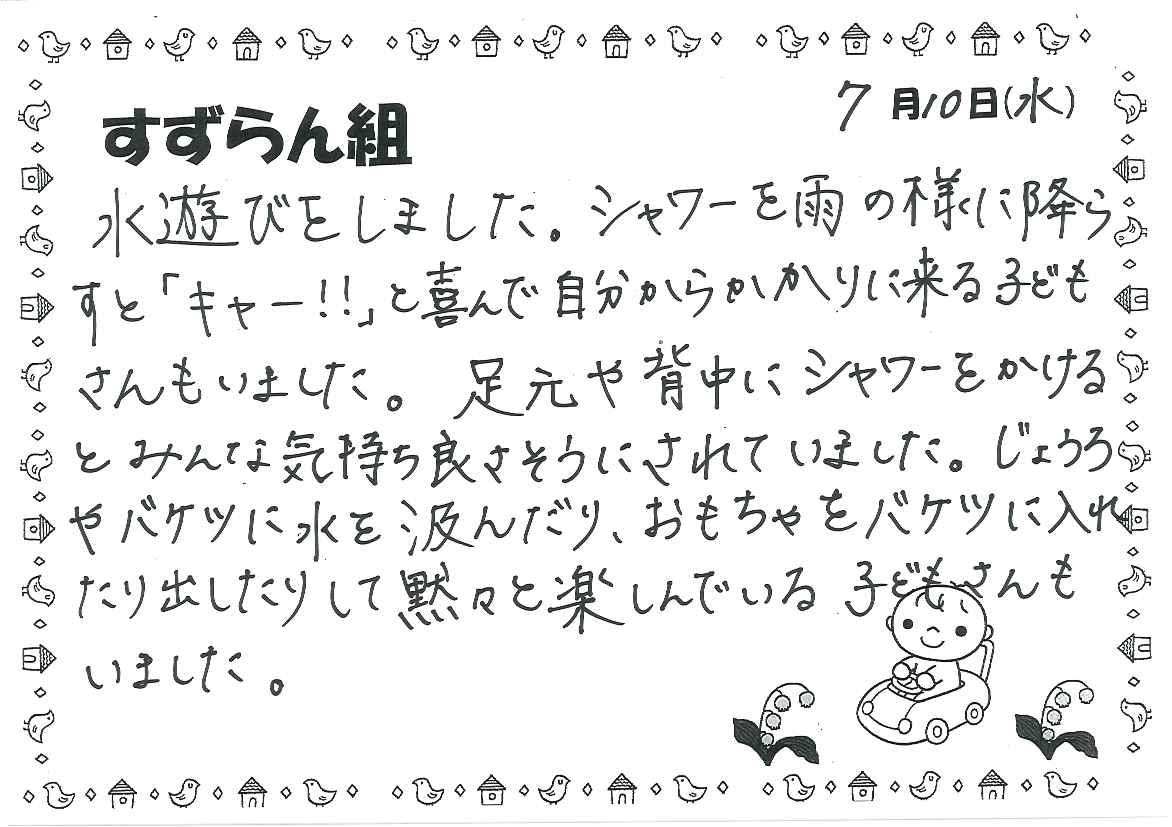 7月10日(水)
すずらん組
水遊びをしました。シャワーを雨の様に降ら
すと「キャー!!」と喜んで自分からかかりに来る子ども
さんもいました。足元や背中にシャワーをかける
とみんな気持ち良さそうにされていました。じょうろ
やバケツに水を汲んだり、おもちゃをバケツに入れ
たり出したりして黙々と楽しんでいる子どもさんも
いました。